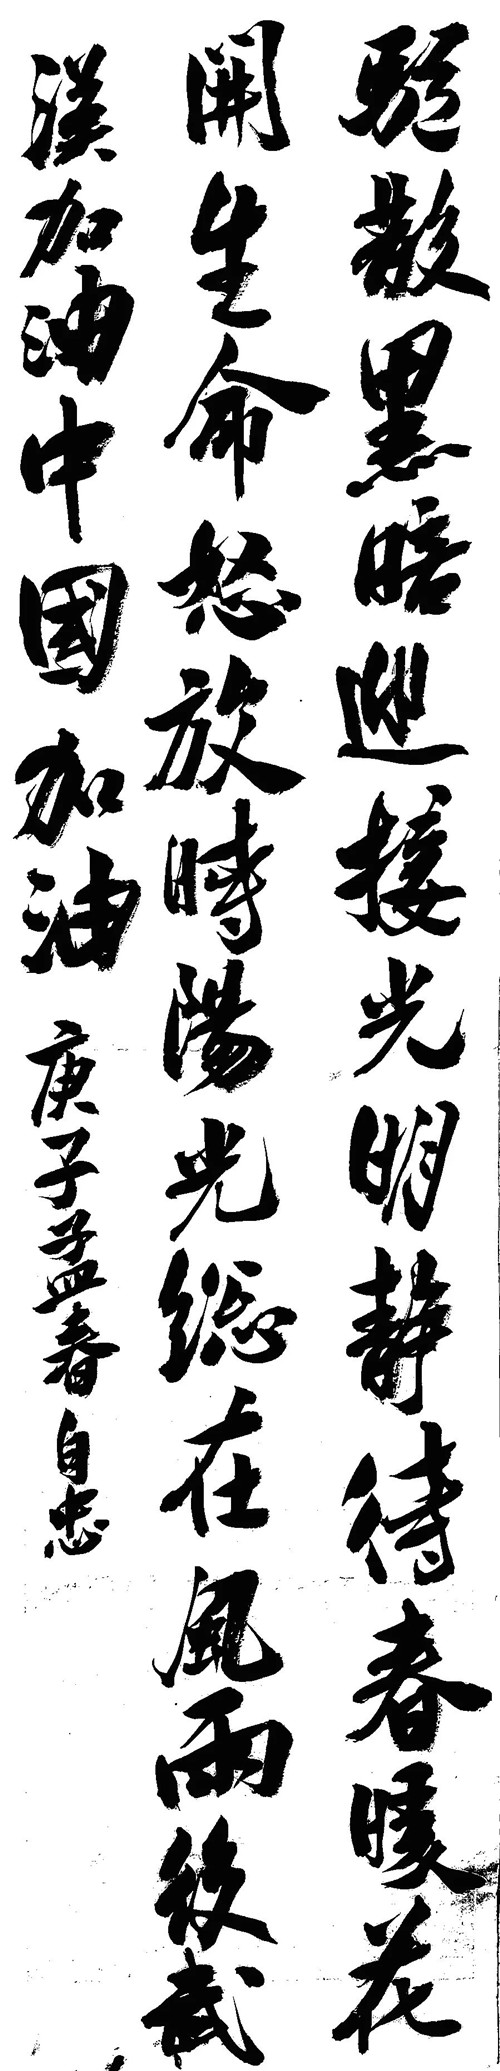 驱散黑暗迎接光明静待春暖花
開生命怒放時陽光總在風雨後武
漢加油中國加油 庚子孟春自忠